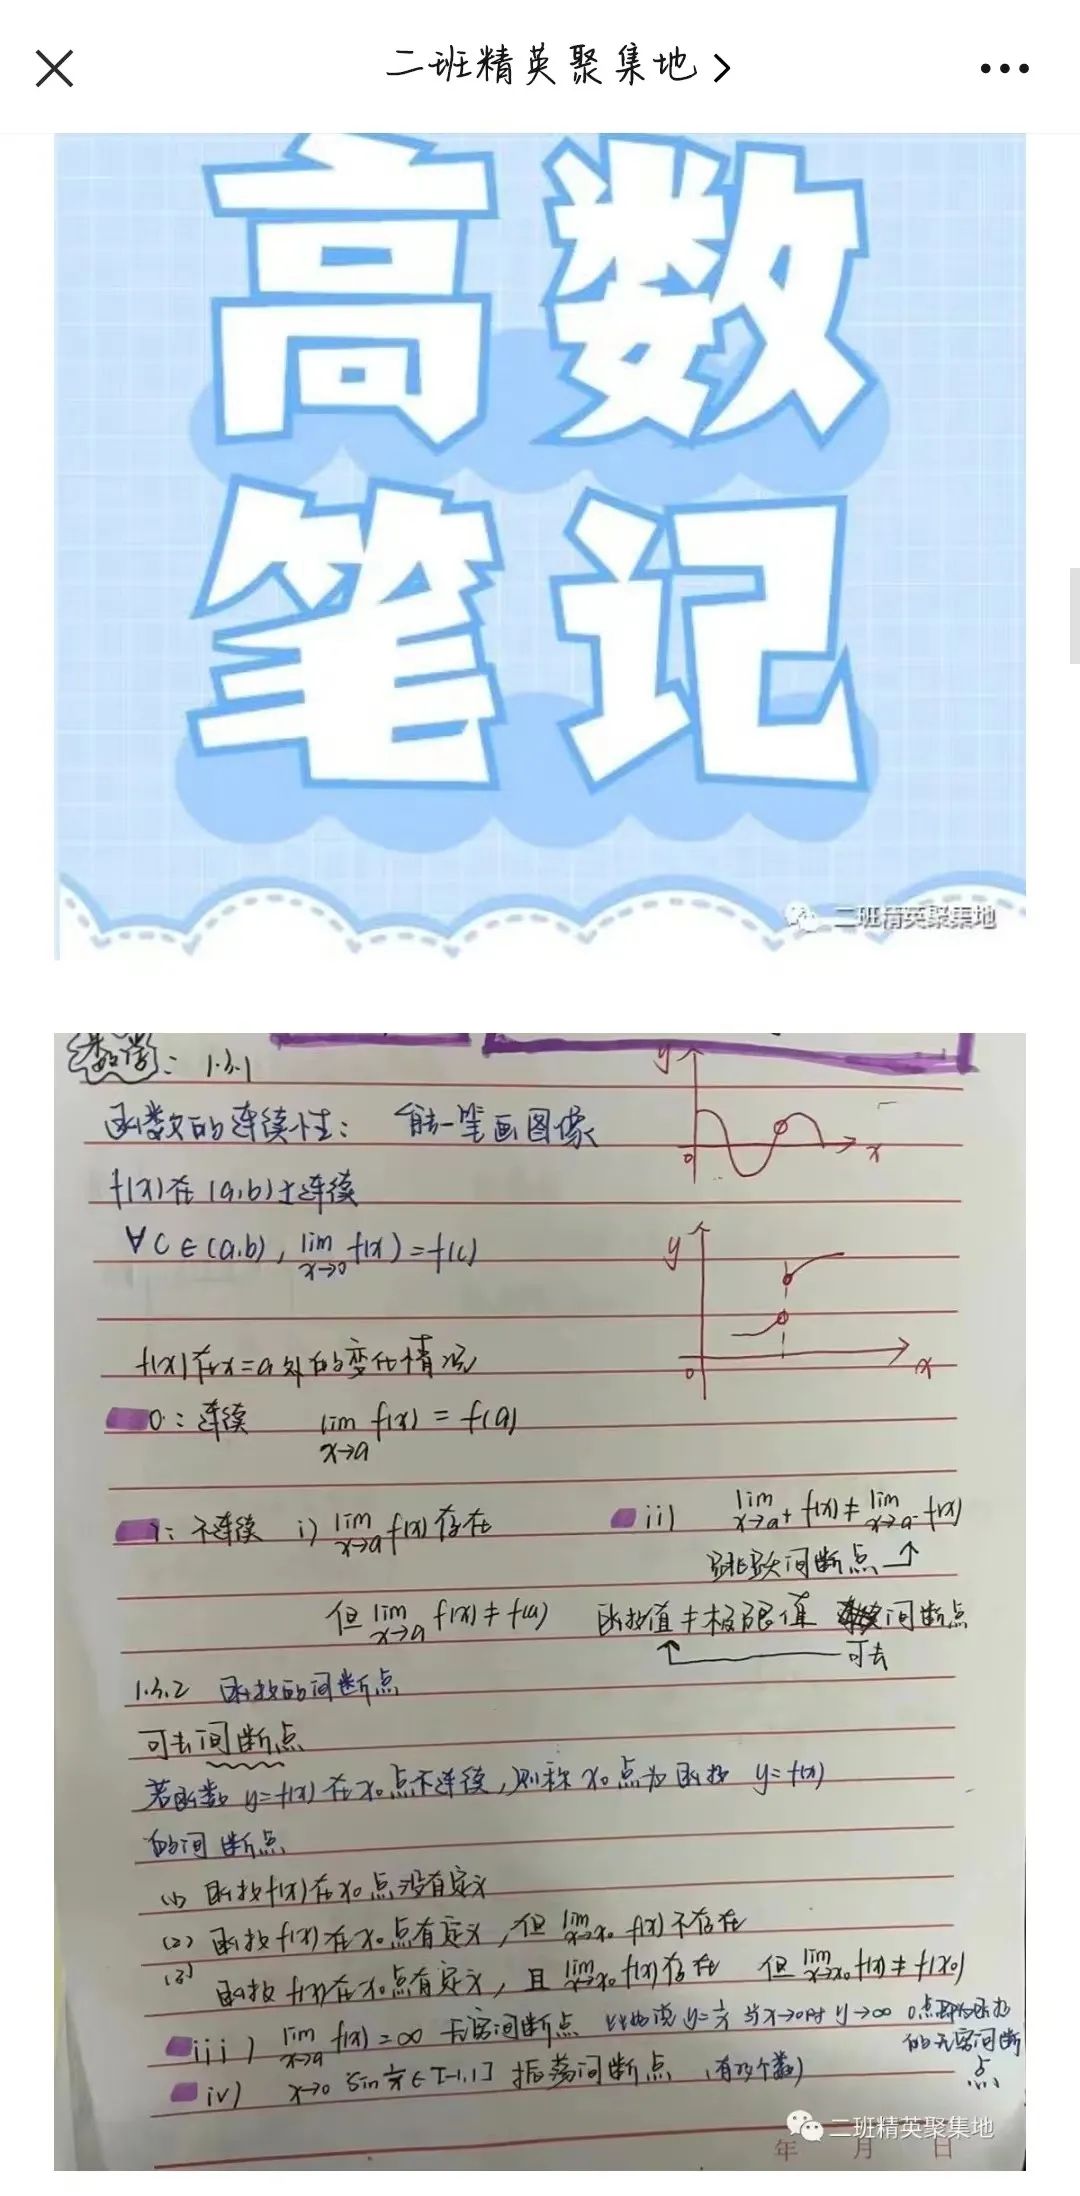 二班精英聚集地
高数
笔记
二班精英聚集地
数学: 1.3.1
函数的连续性: 能一笔画图像
y
x
0
f(x)在(a,b)上连续
∀C∈(a,b), lim x→0 f(x)=f(c)
y
x
0
f(x)在x=a处的变化情况
0: 连续 lim x→a f(x) = f(a)
1: 不连续 i) lim x→a f(x)存在 ii) lim x→a⁺ f(x)≠lim x→a⁻ f(x)
跳跃间断点
但 lim x→a f(x)≠f(a) 函数值≠极限值 间断点
可去
1.3.2 函数的间断点
可去间断点
若函数 y=f(x)在x₀点不连续,则称x₀点为函数 y=f(x)
的间断点
(1) 函数f(x)在x₀点没有定义
(2) 函数f(x)在x₀点有定义,但 lim x→x₀ f(x)不存在
(3) 函数f(x)在x₀点有定义,且 lim x→x₀ f(x)存在 但 lim x→x₀ f(x)≠f(x₀)
iii) lim x→a f(x)=∞ 无穷间断点 比如说 y=1/x 当x→0时 y→∞ 0点即为函数
的无穷间断
点
iv) x→0 sin 1/x∈[-1,1] 振荡间断点 (有多个数)
二班精英聚集地
年 月 日